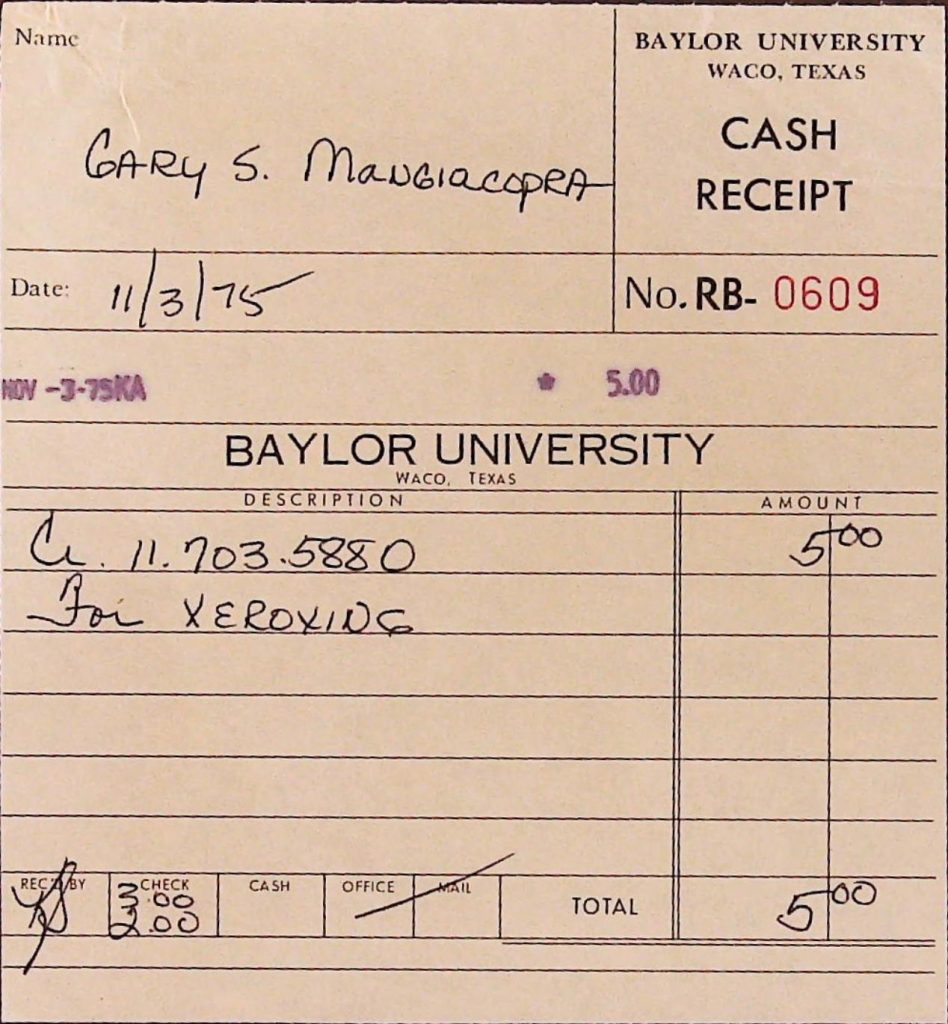 Name
BAYLOR UNIVERSITY
WACO, TEXAS
CASH
RECEIPT
GARY S. MANGIACOPRA
Date: 11/3/75
No. RB- 0609
NOV -3-75KA * 5.00
BAYLOR UNIVERSITY
WACO, TEXAS
DESCRIPTION AMOUNT
Cr. 11.703.5880 5 00
For XEROXING
REC'D BY CHECK CASH OFFICE MAIL
3.00
2.00
TOTAL 5 00